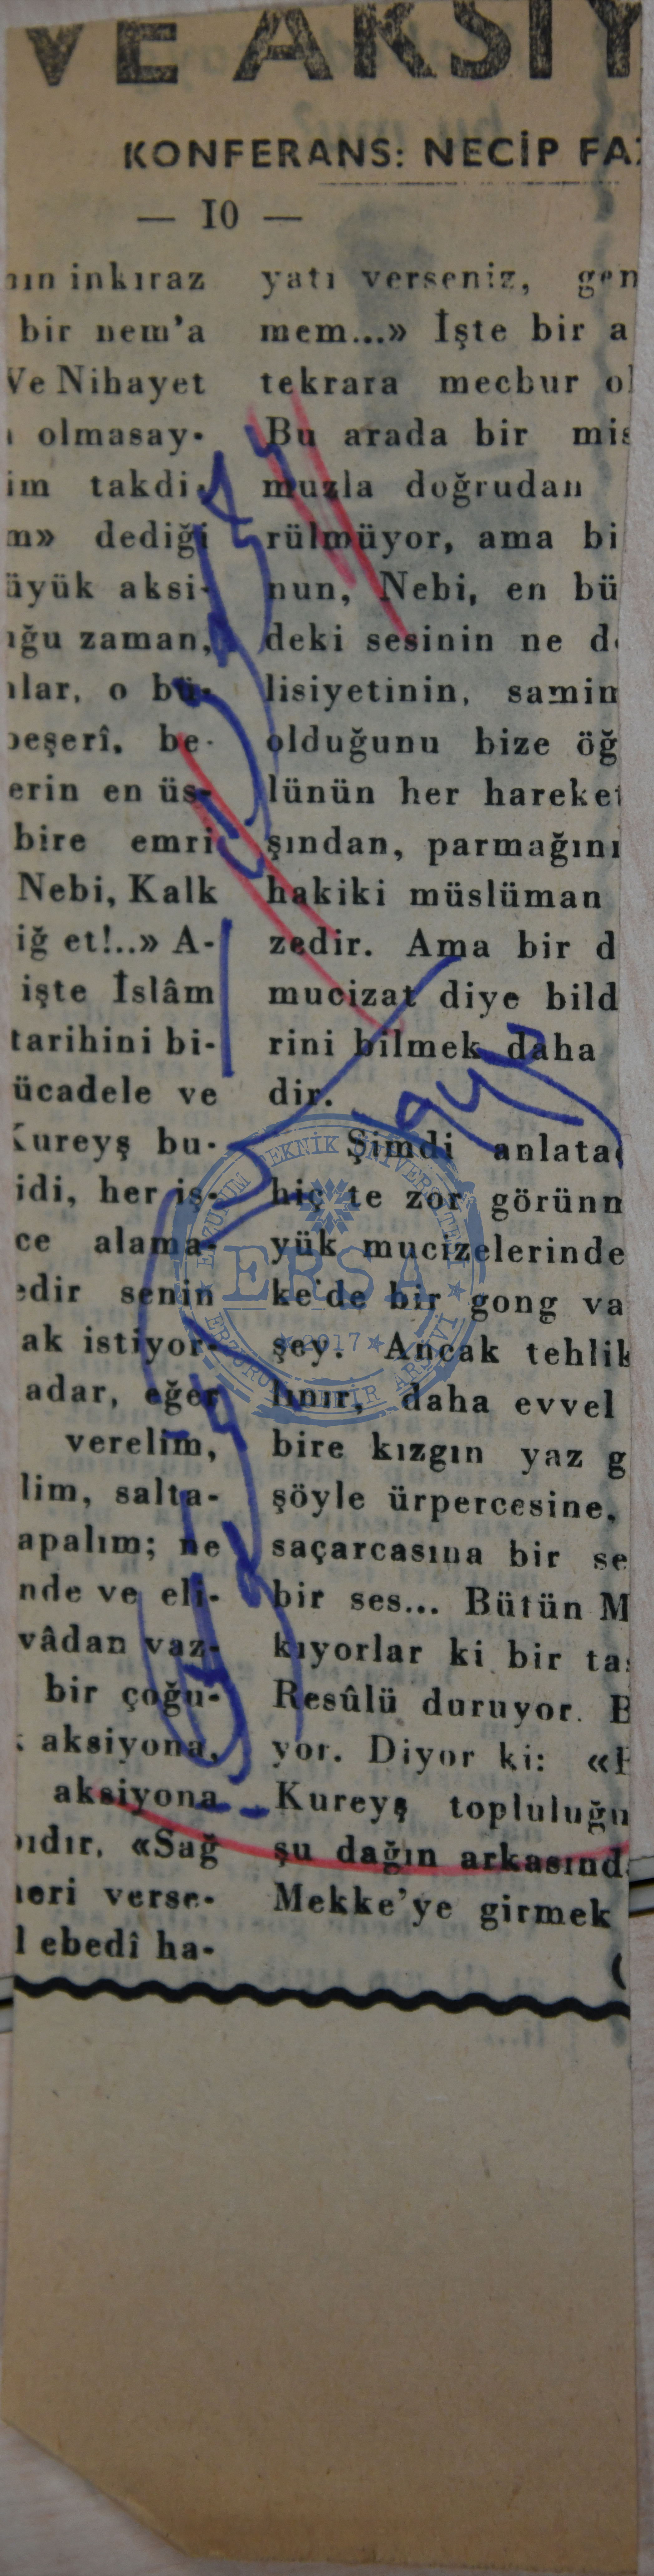 VE AKSİY
KONFERANS: NECİP FA
— 10 —
nın inkıraz
bir nem'a
Ve Nihayet
olmasay-
im takdi-
m» dediği
üyük aksi-
ığu zaman,
lar, o bü-
beşerî, be-
erin en üs-
bire emri
Nebi, Kalk
iğ et!..» A-
işte İslâm
tarihini bi-
ücadele ve
Kureyş bu-
idi, her iş-
ce alama-
edir senin
ak istiyor-
adar, eğer
verelim,
lim, salta-
apalım; ne
nde ve eli-
vâdan vaz-
bir çoğu-
aksiyona,
aksiyona
ıdır, «Sağ
neri verse-
l ebedî ha-
yatı verseniz, gen
mem...» İşte bir a
tekrara mecbur ol
Bu arada bir mis
muzla doğrudan
rülmüyor, ama bi
nun, Nebi, en bü
deki sesinin ne d
lisiyetinin, samim
olduğunu bize öğ
lünün her hareket
şından, parmağını
hakiki müslüman
zedir. Ama bir d
mucizat diye bild
rini bilmek daha
dir.
Şimdi anlata
hiç te zor görünm
yük mucizelerinde
ke'de bir gong va
şey. Ancak tehlik
lınır, daha evvel
bire kızgın yaz g
şöyle ürpercesine,
saçarcasına bir se
bir ses... Bütün M
kıyorlar ki bir ta
Resûlü duruyor. B
yor. Diyor ki: «E
Kureyş topluluğu
şu dağın arkasınd
Mekke'ye girmek
(
ERZURUM TEKNİK ÜNİVERSİTESİ
ERSA
★ 2017 ★
ERZURUM ŞEHİR ARŞİVİ